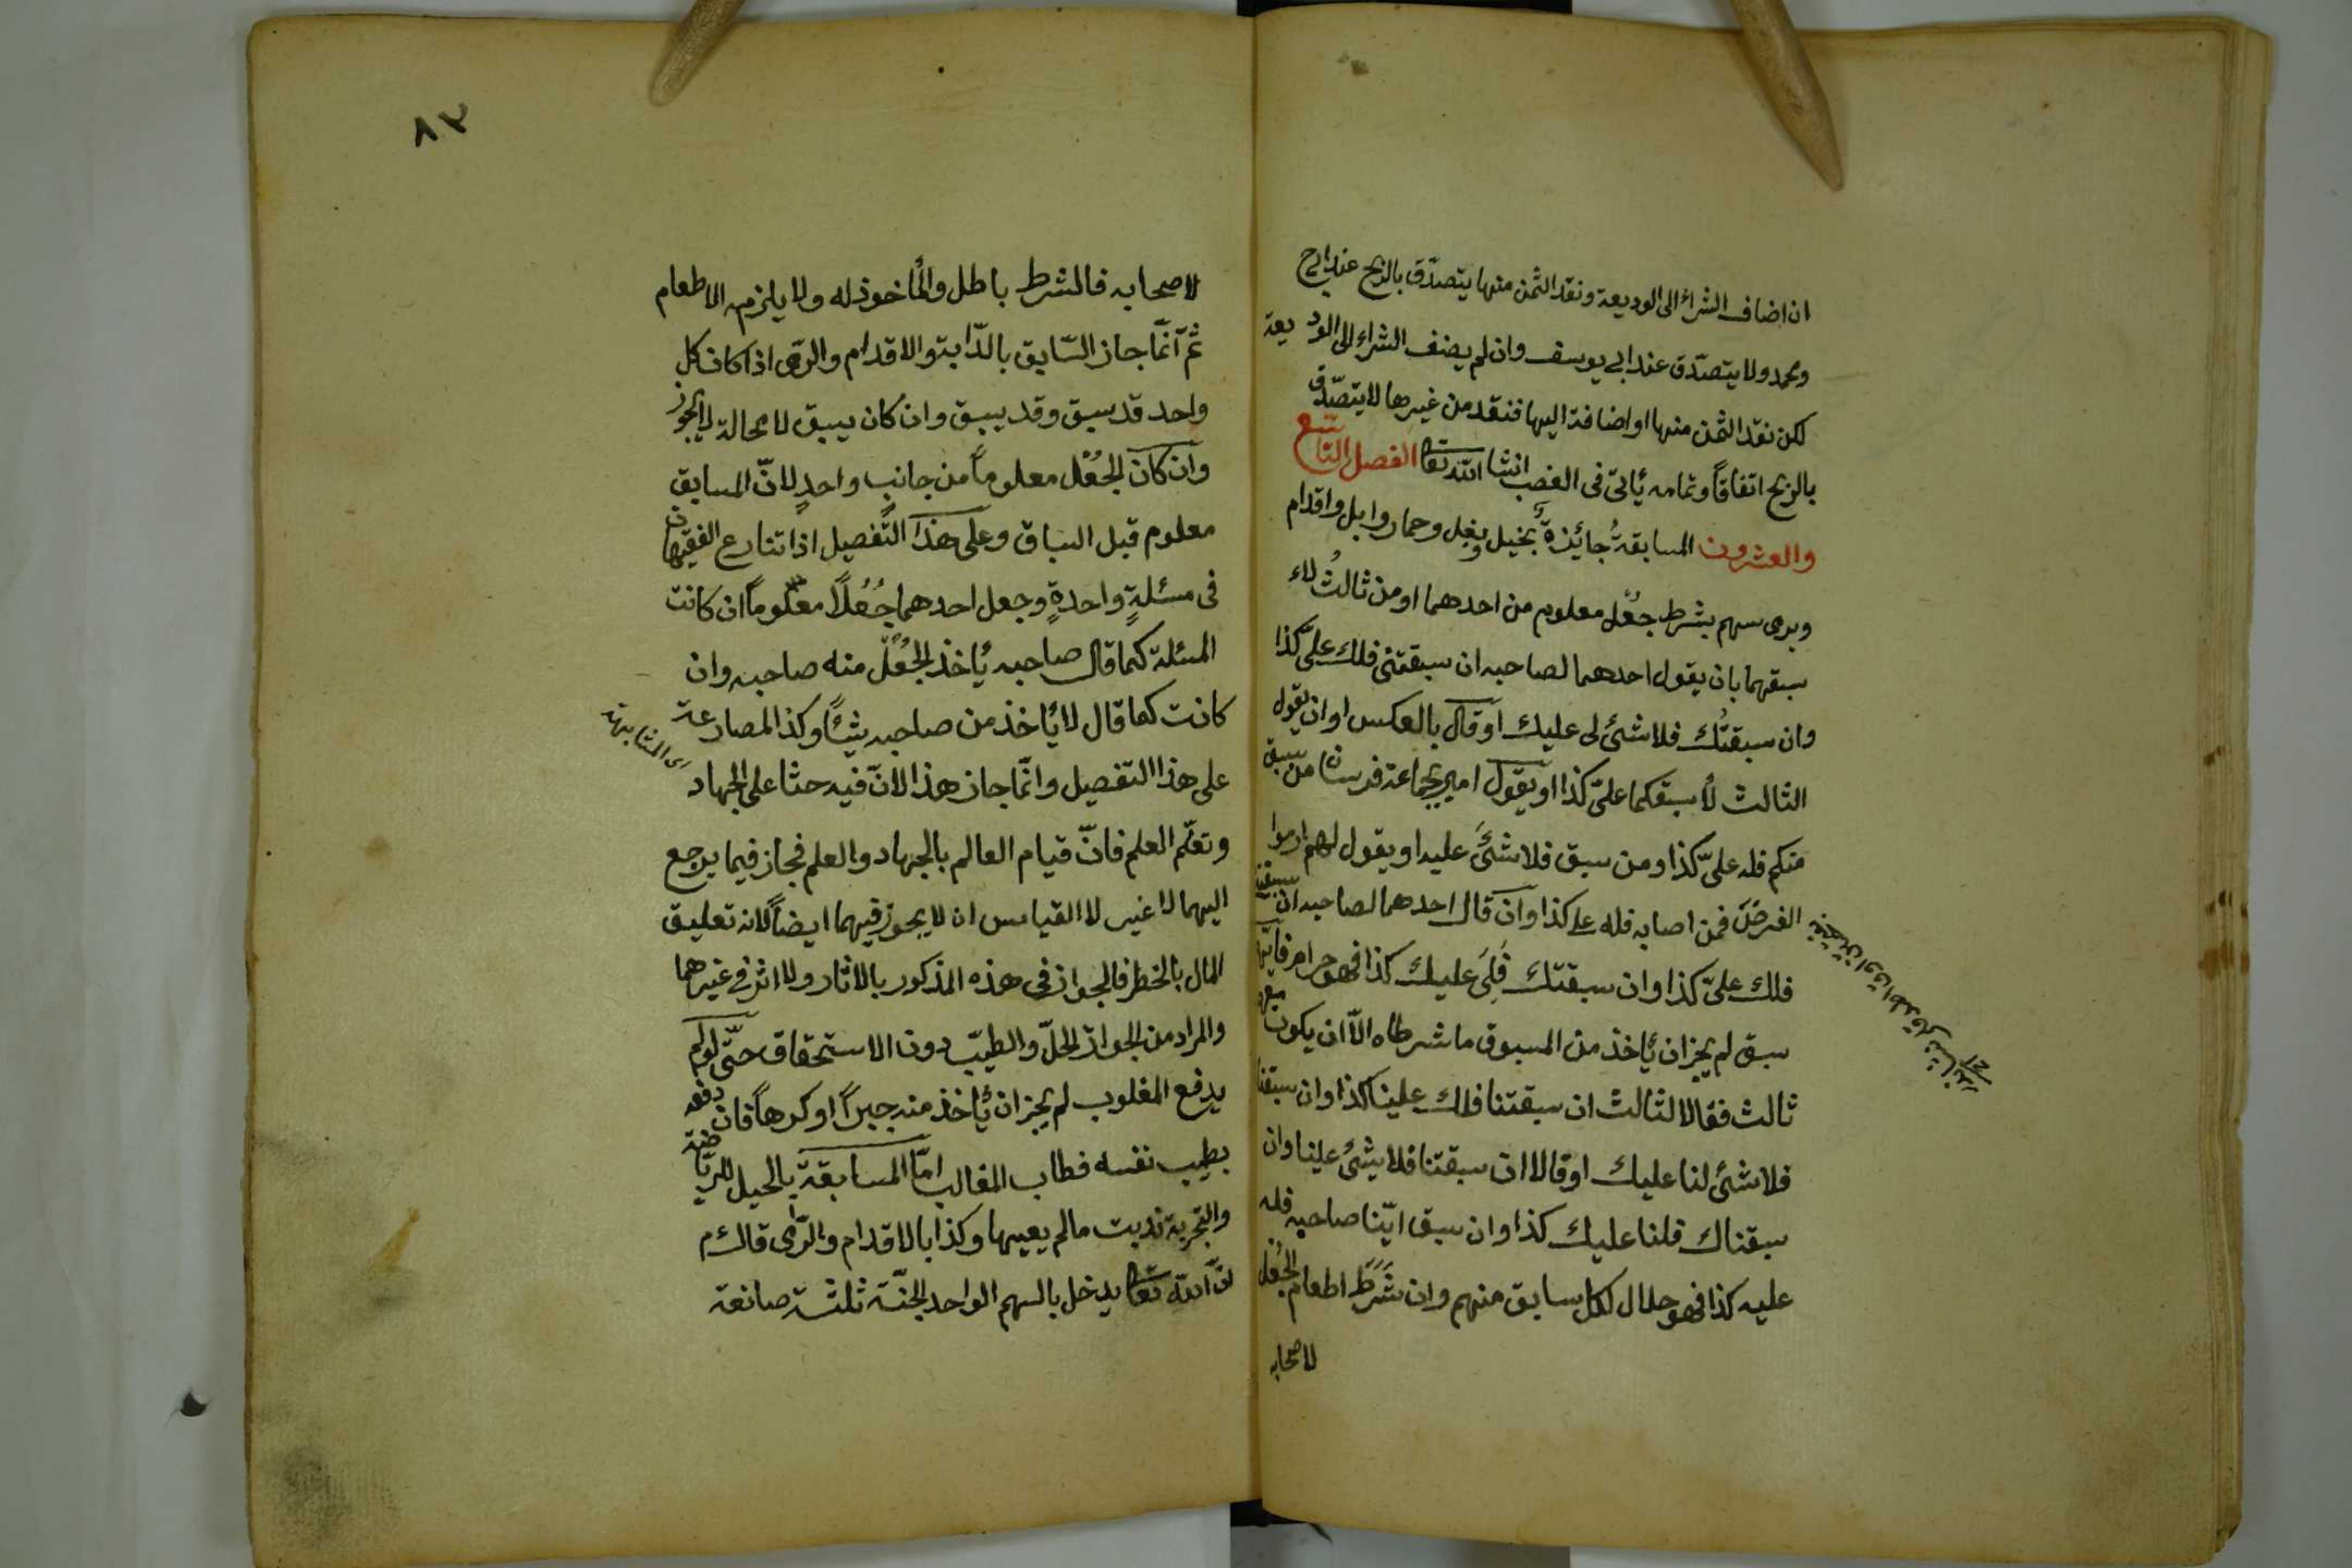 ان اضاف الشراء الى الوديعة ونقد الثمن منها يتصدّق بالربح عند ابى ح
ومحمد ولا يتصدّق عند ابى يوسف وان لم يضف الشراء الى الوديعة
لكن نقد الثمن منها او اضافة اليها فنقد من غيرها لا يتصدّق
بالربح اتفاقاً وتمامه يأتى فى الغصب انشا الله تعا الفصل التاسع
والعشرون المسابقةُ جائزةٌ بخيل وبغل وحمار وابل واقدام
وبرمى سهم بشرط جعْل معلوم من احدهما او من ثالثُ لاء
سبقهما بان يقول احدهما لصاحبه ان سبقتنى فلك علىّ كذا
وان سبقتُك فلا شئ لى عليك او قال بالعكس او ان يقول
الثالث لأسبقكما علىّ كذا او يقول امير بجماعة فرسان من سبق
منكم فله علىّ كذا ومن سبق فلا شئَ عليه او يقول لهم ارموا
الغرضَ فمن اصابه فله على كذا وان قال احدهما لصاحبه ان سبقت
فلك علىّ كذا وان سبقتك فَلِىَ عليك كذا فهو حرام فايّهما
سبق لم يجز ان يأخذ من المسبوق ما شرطاه الّا ان يكون معهما
ثالث فقالا لثالث ان سبقتنا فلك علينا كذا وان سبقنا
فلا شئ لنا عليك او قالا ان سبقتنا فلا شئ علينا وان
سبقناك فلنا عليك كذا وان سبق ايّنا صاحبه فله
عليه كذا فهو حلال لكل سابق منهم وان شَرَطَ اطعام الجُعل
لاصحابه
٨٣
لاصحابه فالشرط باطل والمأخوذ له ولا يلزمه الاطعام
ثم انّما جاز السّابق بالدّابة والاقدام والرّمى اذا كان كل
واحد قد سبق وقد يسبق وان كان يسبق لا محالة لا يجوز
وان كان الجُعْل معلوماً من جانب واحدٍ لانّ المسابق
معلوم قبل السباق وعلى هذا التّفصيل اذا تنازع الفقيهان
فى مسئلةٍ واحدةٍ وجعل احدهما جُعْلاً معلوماً ان كانت
المسئلة كما قال صاحبه يأخذ الجُعْلَ منه صاحبه وان
كانت كما قال لا يأخذ من صاحبه شيئاً وكذا المصارعة
على هذا التفصيل وانّما جاز هذا لانّ فيه حثّا على الجهاد
وتعلّم العلم فانّ قيام العالم بالجهاد والعلم فجاز فيما يرجع
اليهما لا غير لا القياس ان لا يجوز فيهما ايضاً لانه تعليق
المال بالخطر فالجواز فى هذه المذكور بالاثار ولا اثر فى غيرهما
والمراد من الجواز الحلّ والطيّب دون الاستحقاق حتّى لو لم
يدفع المغلوب لم يجز ان يأخذ منه جبراً او كرهاً فان دفعه
بطيب نفسه فطاب الغالب امّا المسابقة بالخيل للرياضة
والتجربة ندبت مالم يعيبها وكذا بالاقدام والرّمى قال م
انّ الله تعا يدخل بالسهم الواحد الجنّة ثلثة صانعه